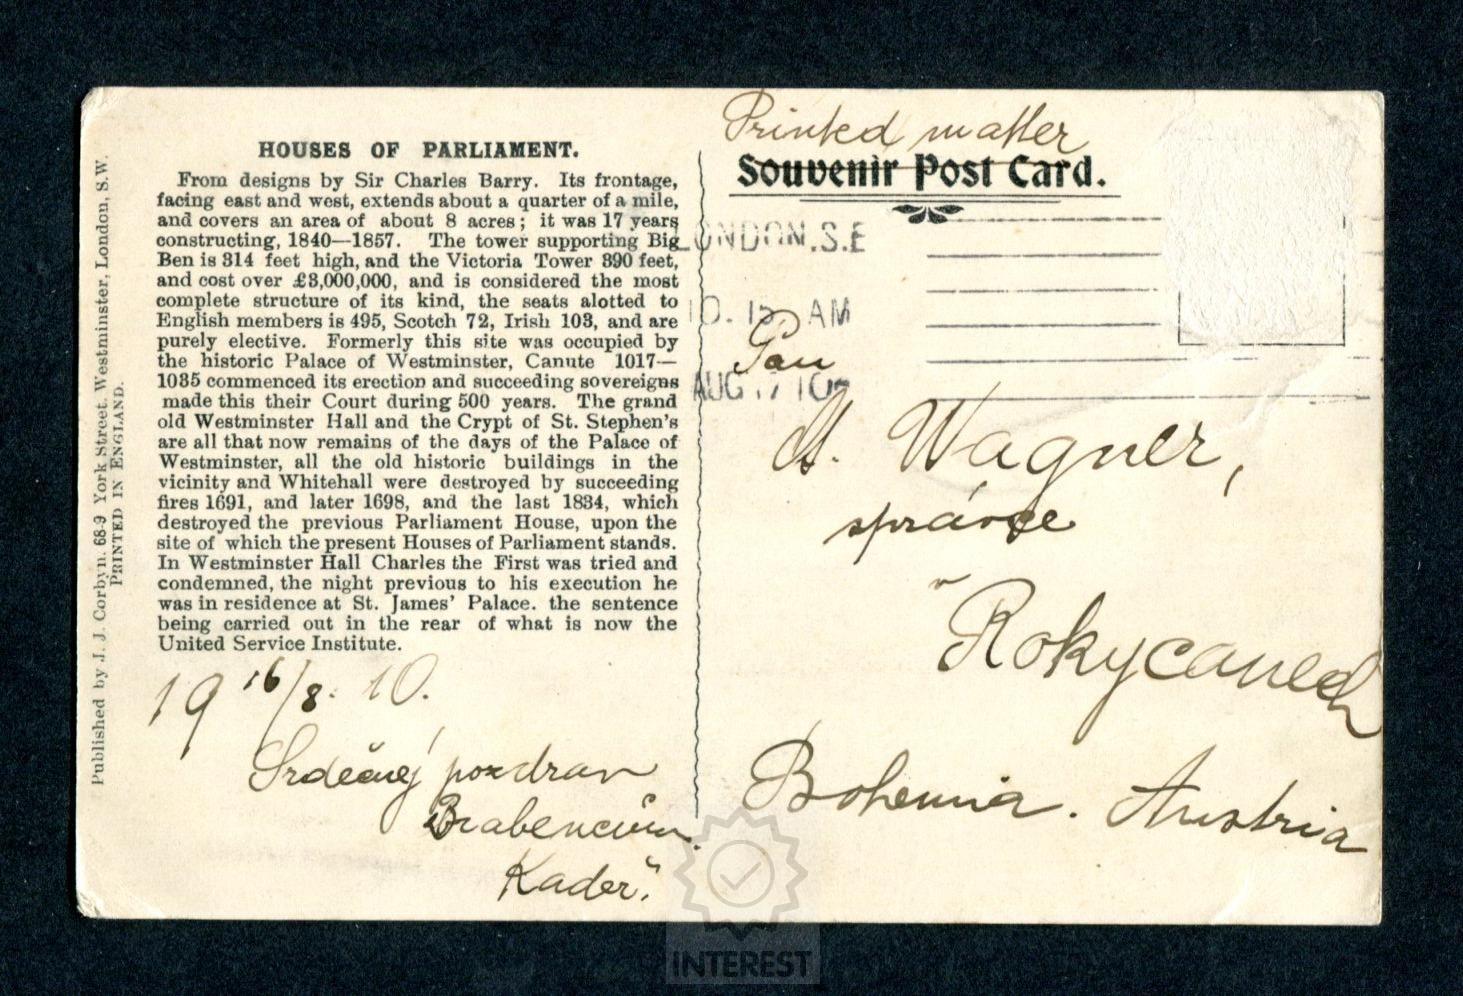 Published by J. J. Corbyn. 68-9 York Street. Westminster, London, S.W.
PRINTED IN ENGLAND.
HOUSES OF PARLIAMENT.
From designs by Sir Charles Barry. Its frontage,
facing east and west, extends about a quarter of a mile,
and covers an area of about 8 acres; it was 17 years
constructing, 1840—1857. The tower supporting Big
Ben is 314 feet high, and the Victoria Tower 390 feet,
and cost over £3,000,000, and is considered the most
complete structure of its kind, the seats alotted to
English members is 495, Scotch 72, Irish 103, and are
purely elective. Formerly this site was occupied by
the historic Palace of Westminster, Canute 1017—
1035 commenced its erection and succeeding sovereigns
made this their Court during 500 years. The grand
old Westminster Hall and the Crypt of St. Stephen's
are all that now remains of the days of the Palace of
Westminster, all the old historic buildings in the
vicinity and Whitehall were destroyed by succeeding
fires 1691, and later 1698, and the last 1834, which
destroyed the previous Parliament House, upon the
site of which the present Houses of Parliament stands.
In Westminster Hall Charles the First was tried and
condemned, the night previous to his execution he
was in residence at St. James' Palace. the sentence
being carried out in the rear of what is now the
United Service Institute.
19 16/8. 10.
Srdečný pozdrav
Kadeř.
Printed matter
Souvenir Post Card.
LONDON.S.E
10.15 AM
AUG 17 10
Pan
Wagner,
správce
v
Rokycanech
Bohemia. Austria
INTEREST